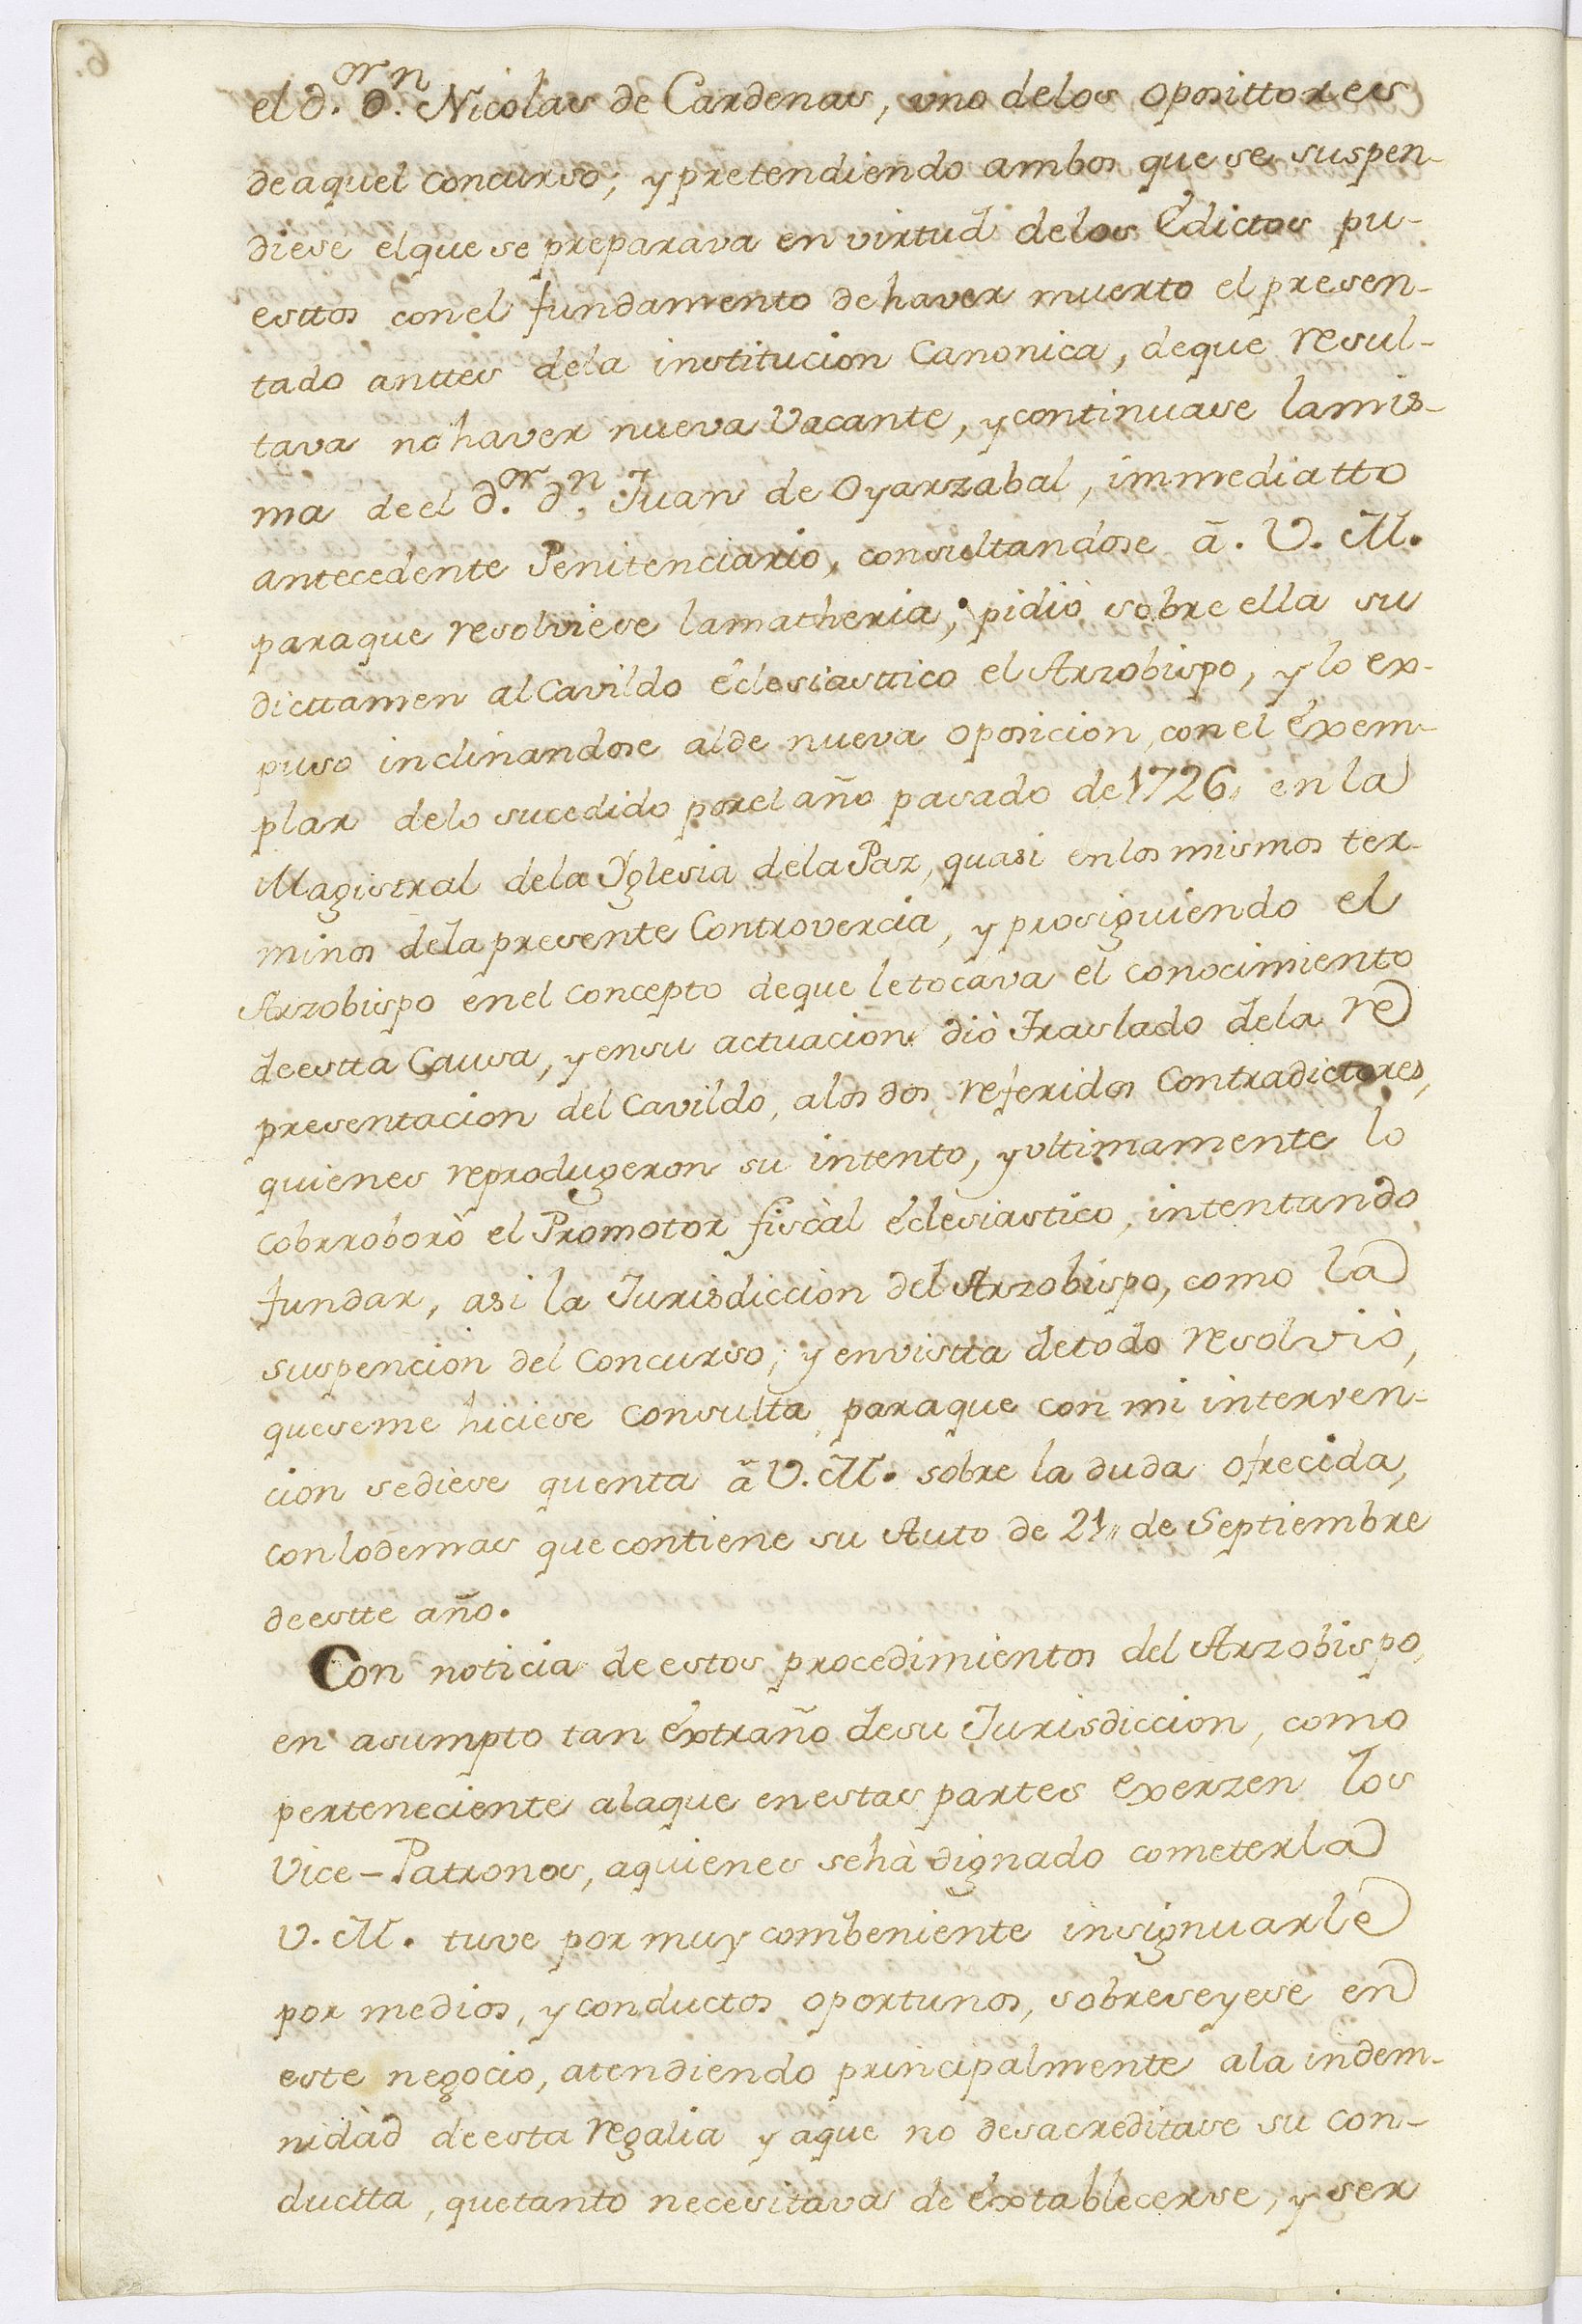 el d.or d.n Nicolas de Cardenas, uno delos oposittores
deaquel concurso; y pretendiendo ambos que se suspen-
diese elque se preparava en virtud delos Edictos pu-
esttos conel fundamento dehaver muerto el presen-
tado anttes dela institucion Canonica, deque resul-
tava no haver nueva Vacante, y continuase lamis-
ma deel d.or d.n Juan de Oyarzabal, immediatto
antecedente Penitenciario, consultandose â. V. M.
paraque resolviese lamatheria; pidiò sobre ella su
dicttamen alCavildo éclesiasttico el Arzobispo, y lo ex-
puso inclinandose alde nueva oposicion, conel éxem-
plar delo sucedido porel año pasado de 1726,, en la
Magistral dela Yglesia dela Paz, quasi enlos mismos ter-
minos dela presente Controvercia, y prosiguiendo el
Arzobispo enel concepto deque letocava el conocimiento
deestta Causa, y ensu actuacion diò Traslado dela re
presentacion del Cavildo, alos dos referidos Contradictores,
quienes reprodugeron su intento, y ultimamente lo
cobrroborò el Promotor fiscàl éclesiastico, intentando
fundar, asi la Jurisdiccion del Arzobispo, como la
suspencion del Concurso; y envistta detodo resolviò,
queseme hiciese Consulta, paraque con mi interven-
cion sediese quenta â V. M. sobre la duda ofrecida,
con lodemas que contiene su Auto de 21,, de Septiembre
deestte año.
Con noticia de estos procedimientos del Arzobispo,
en asumpto tan éxtraño desu Jurisdiccion, como
perteneciente alaque enestas partes exerzen los
Vice-Patronos, aquienes sehà dignado cometerla
V. M. tuve por muy combeniente insignuarle
por medios, y conductos oportunos, sobreseyese en
este negocio, atendiendo principalmente ala indem-
nidad deesta regalia y aque no desacreditase su con-
ductta, quetanto necesitava de éxtablecerse, y ser